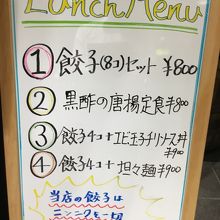 Lunch Menu
① 餃子(8コ)セット ¥800
② 黒酢の唐揚定食¥800
③ 餃子4コ+エビ玉子チリソース丼
¥900
④ 餃子4コ+坦々麺¥900
当店の餃子は
ニンニクを一切